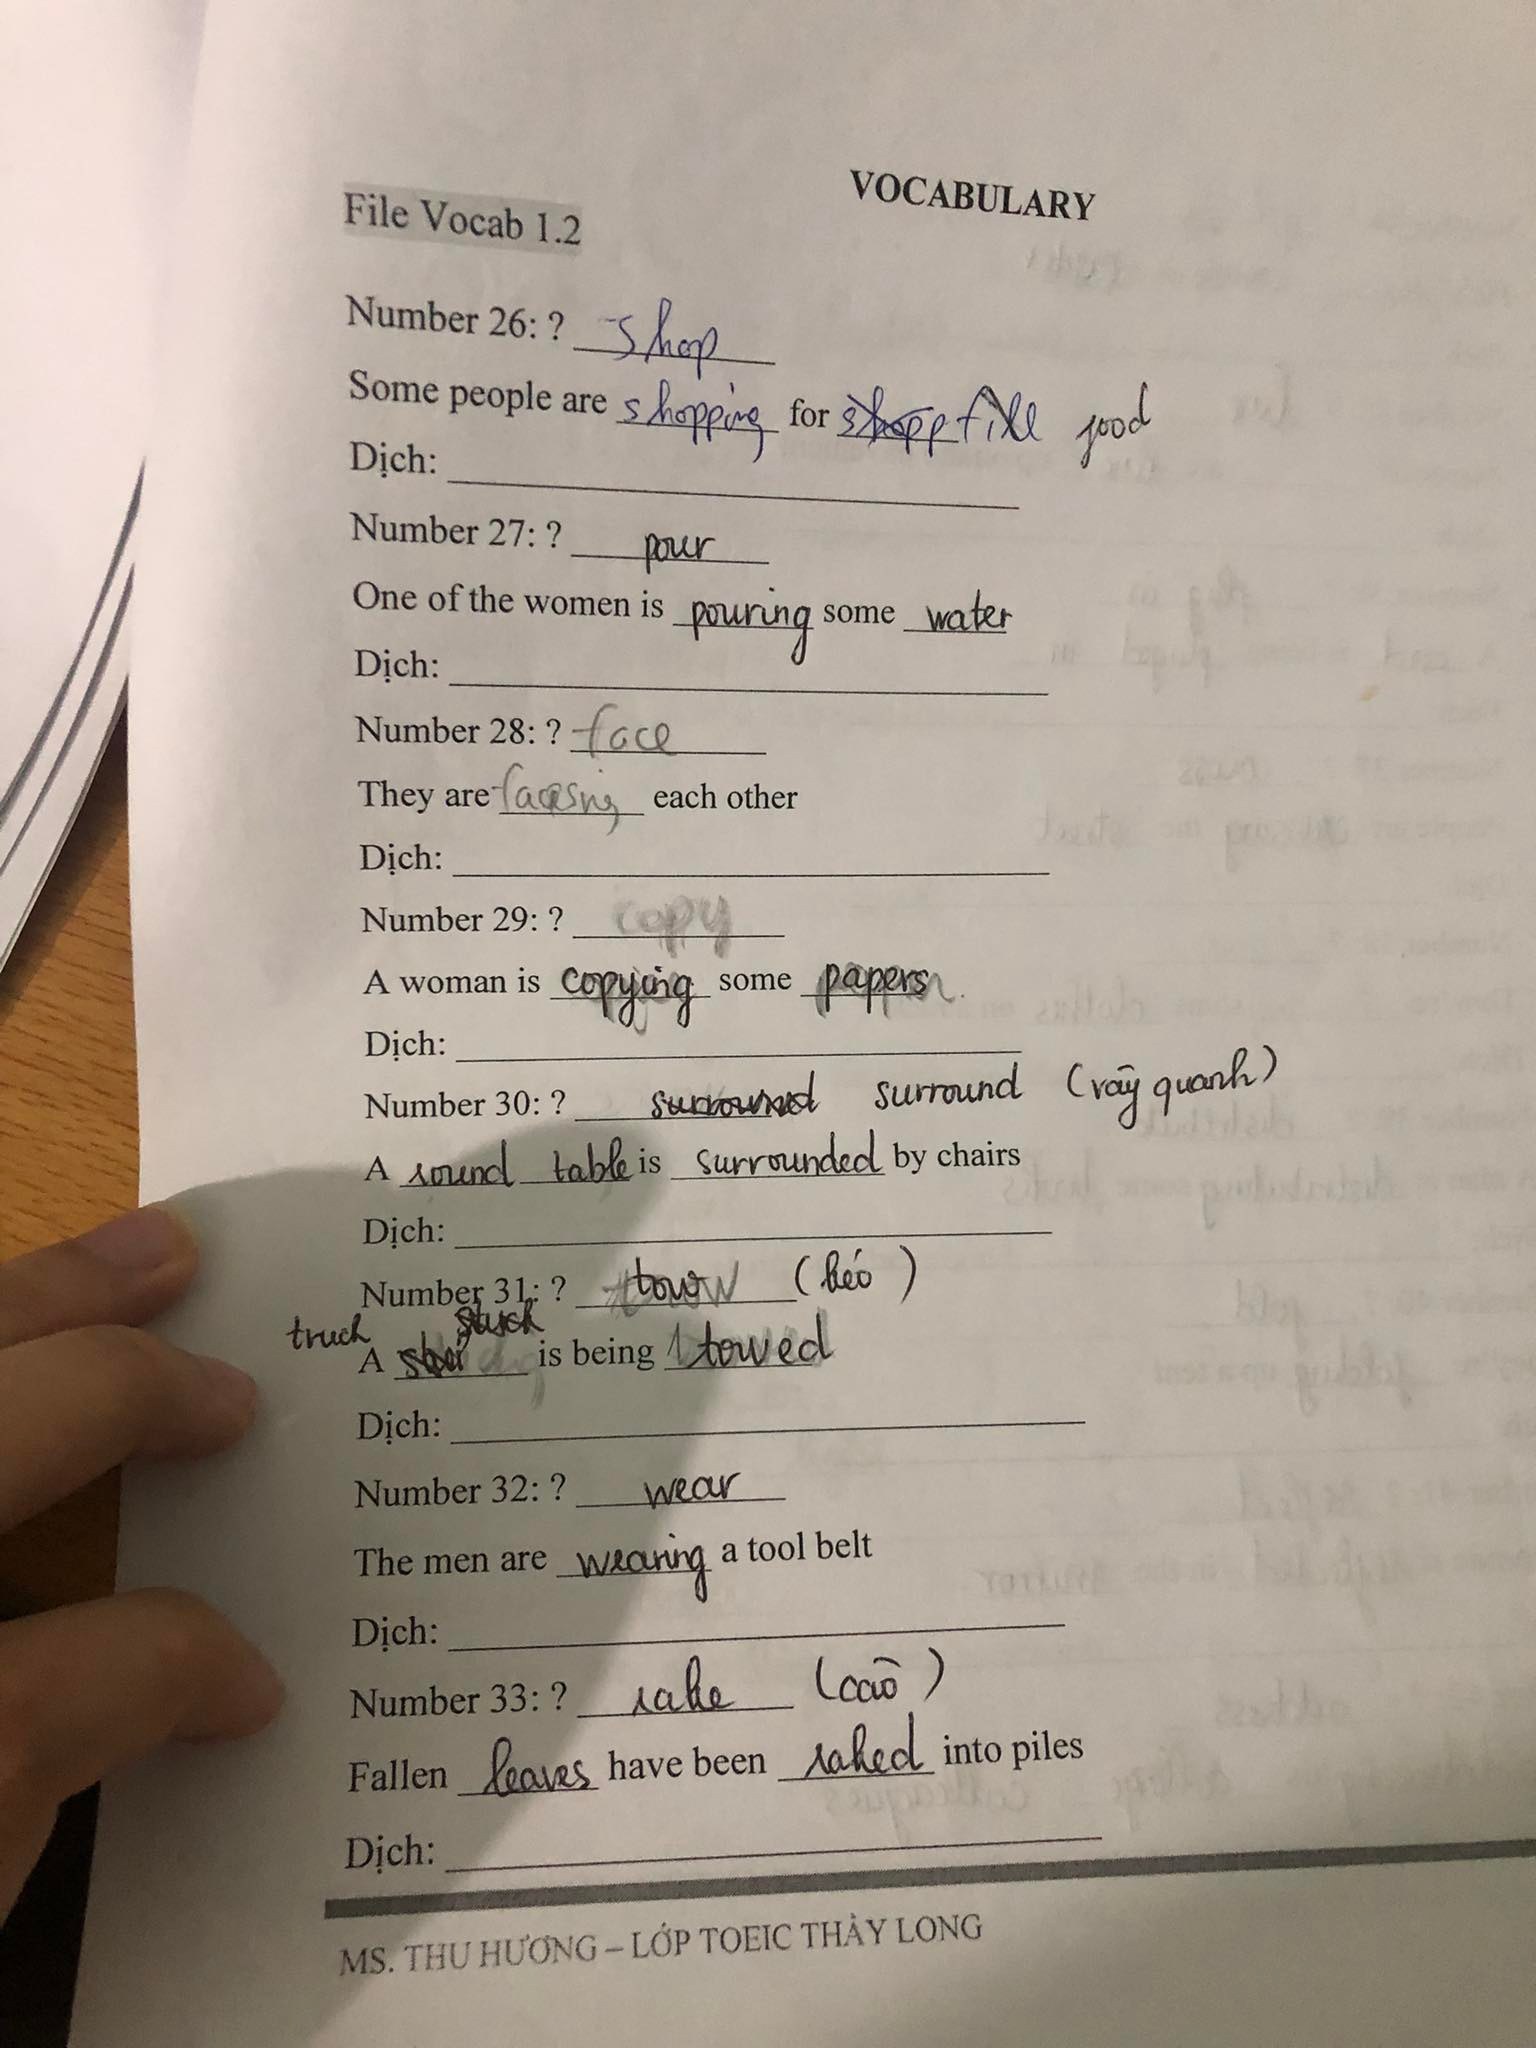 VOCABULARY
File Vocab 1.2
Number 26: ? shop
Some people are shopping for food
Dịch:
Number 27: ? pour
One of the women is pouring some water
Dịch:
Number 28: ? face
They are facing each other
Dịch:
Number 29: ? copy
A woman is copying some papers
Dịch:
Number 30: ? surround surround (vây quanh)
A round table is surrounded by chairs
Dịch:
Number 31: ? tow (kéo)
truck
A is being towed
Dịch:
Number 32: ? wear
The men are wearing a tool belt
Dịch:
Number 33: ? rake (cào)
Fallen leaves have been raked into piles
Dịch:
MS. THU HƯƠNG – LỚP TOEIC THẦY LONG